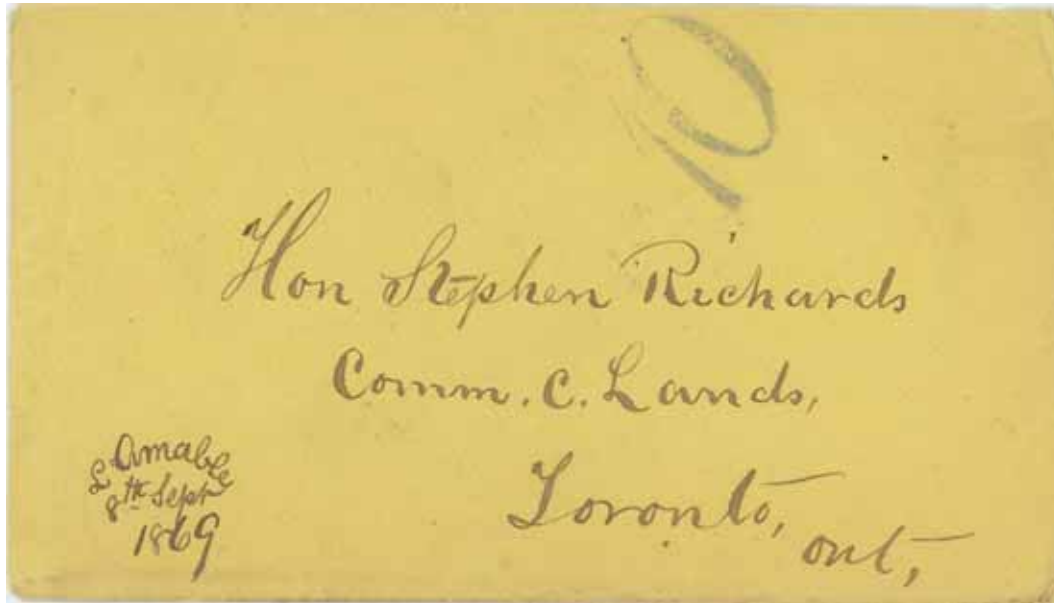 10
Hon Stephen Richards
Comm. C. Lands,
Toronto,
Ont,
L'Amable
8th Sept
1869